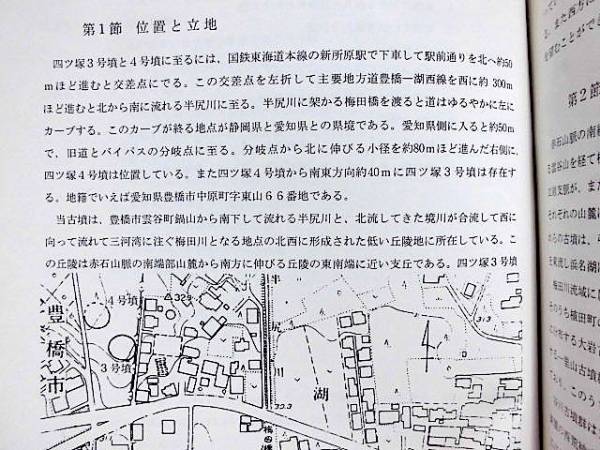 第1節 位置と立地
四ツ塚3号墳と4号墳に至るには、国鉄東海道本線の新所原駅で下車して駅前通りを北へ約50
mほど進むと交差点にでる。この交差点を左折して主要地方道豊橋一湖西線を西に約300m
ほど進むと北から南に流れる半尻川に至る。半尻川に架かる梅田橋を渡ると道はゆるやかに左に
カーブする。このカーブが終る地点が静岡県と愛知県との県境である。愛知県側に入ると約50m
で、旧道とバイパスの分岐点に至る。分岐点から北に伸びる小径を約80mほど進んだ右側に、
四ツ塚4号墳は位置している。また四ツ塚4号墳から南東方向約40mに四ツ塚3号墳は存在す
る。地籍でいえば愛知県豊橋市中原町字東山66番地である。
当古墳は、豊橋市雲谷町鍋山から南下して流れる半尻川と、北流してきた境川が合流して西に
向って流れて三河湾に注ぐ梅田川となる地点の北西に形成された低い丘陵地に所在している。こ
の丘陵は赤石山脈の南端部山麓から南方に伸びる丘陵の東南端に近い支丘である。四ツ塚3号墳
4号墳
3号墳
豊橋市
半尻川
湖
梅田橋
32.3
31.3
第2節
赤石山脈の南
雲谷山を経て
それぞれの山麓に
らの古墳は、4
東流し浜名湖に
梅田川流域に
そのうち植田町
に位置する大岩
する一里山古墳
ており、このう